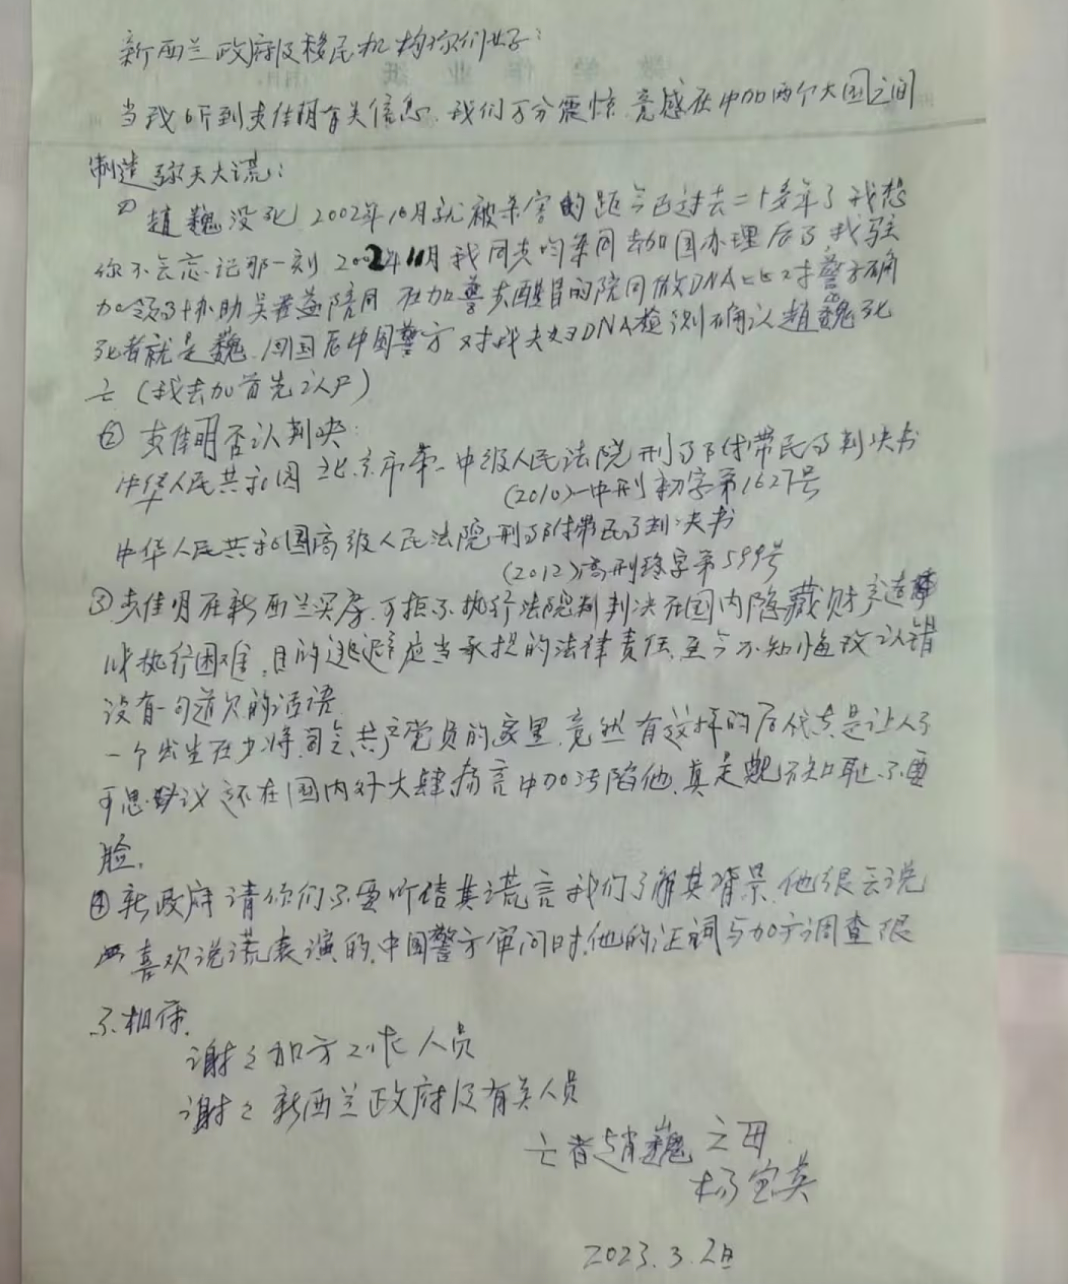 新西兰政府及移民机构你们好：
当我听到李佳明有关信息，我们万分震惊，竟感在中加两个大国之间
制造弥天大谎：
① 趙巍没死，2002年10月就被杀害的距今已过去二十多年了我想
你不会忘记那一刻 2002年11月我同 去加国办理后事，我驻
加领事协助 陪同 在加警 医院同做DNA比对，警方确
死者就是巍，回国后中国警方对我夫妇DNA检测确认趙巍死
亡（我去加首先认尸）
② 李佳明否认判决：
中华人民共和国北京市第一中级人民法院刑事附带民事判决书
(2010)一中刑初字第1627号
中华人民共和国高级人民法院刑事附带民事判决书
(2012)高刑终字第599号
③ 李佳明在新西兰买房，可拒不执行法院判判决在国内隐藏财产造
成执行困难，目的逃避应当承担的法律责任，至今不知悔改认错
没有一句道欠的话语
一个出生在少将司令共产党员的家里，竟然有这样的后代真是让人不
可思议还在国内外大肆扬言中加污陷他，真是 不知耻，不要
脸。
④ 新政府请你们不要听信其谎言我们了解其背景，他很会说
喜欢说谎表演的，中国警方审问时，他的证词与加方调查很
不相符。
谢々加方工作人员
谢々新西兰政府及有关人员
亡者趙巍之母
杨宝英
2023.3.2日